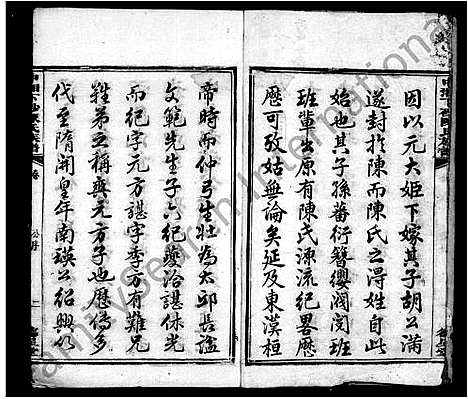 因以元大姬下嫁其子胡公滿
遂封於陳而陳氏之得姓自此
始也其子孫蕃衍簪纓閥閱班
班輩出原有陳氏源流紀畧歷
歷可攷姑無論矣延及東漢桓
帝時而仲弓生壯為太邱長諡
文範先生子六紀夔洽諶休光
而紀字元方諶字季方有難兄
難弟之稱爽元方子也歷傳多
代至隋開皇年南瑛公紹興仍